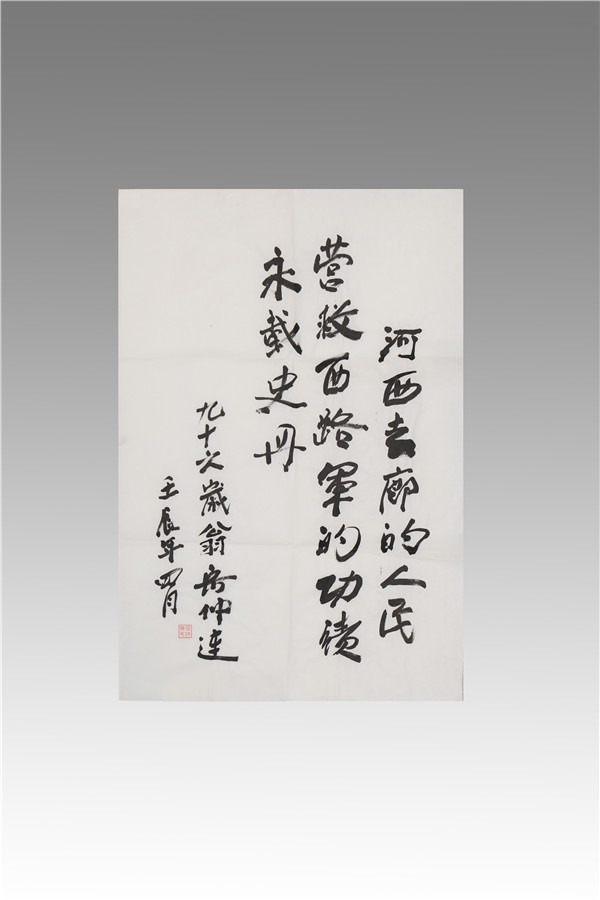 河西走廊的人民
营救西路軍的功績
永載史册
九十六歲翁岳仲連
壬辰年四月